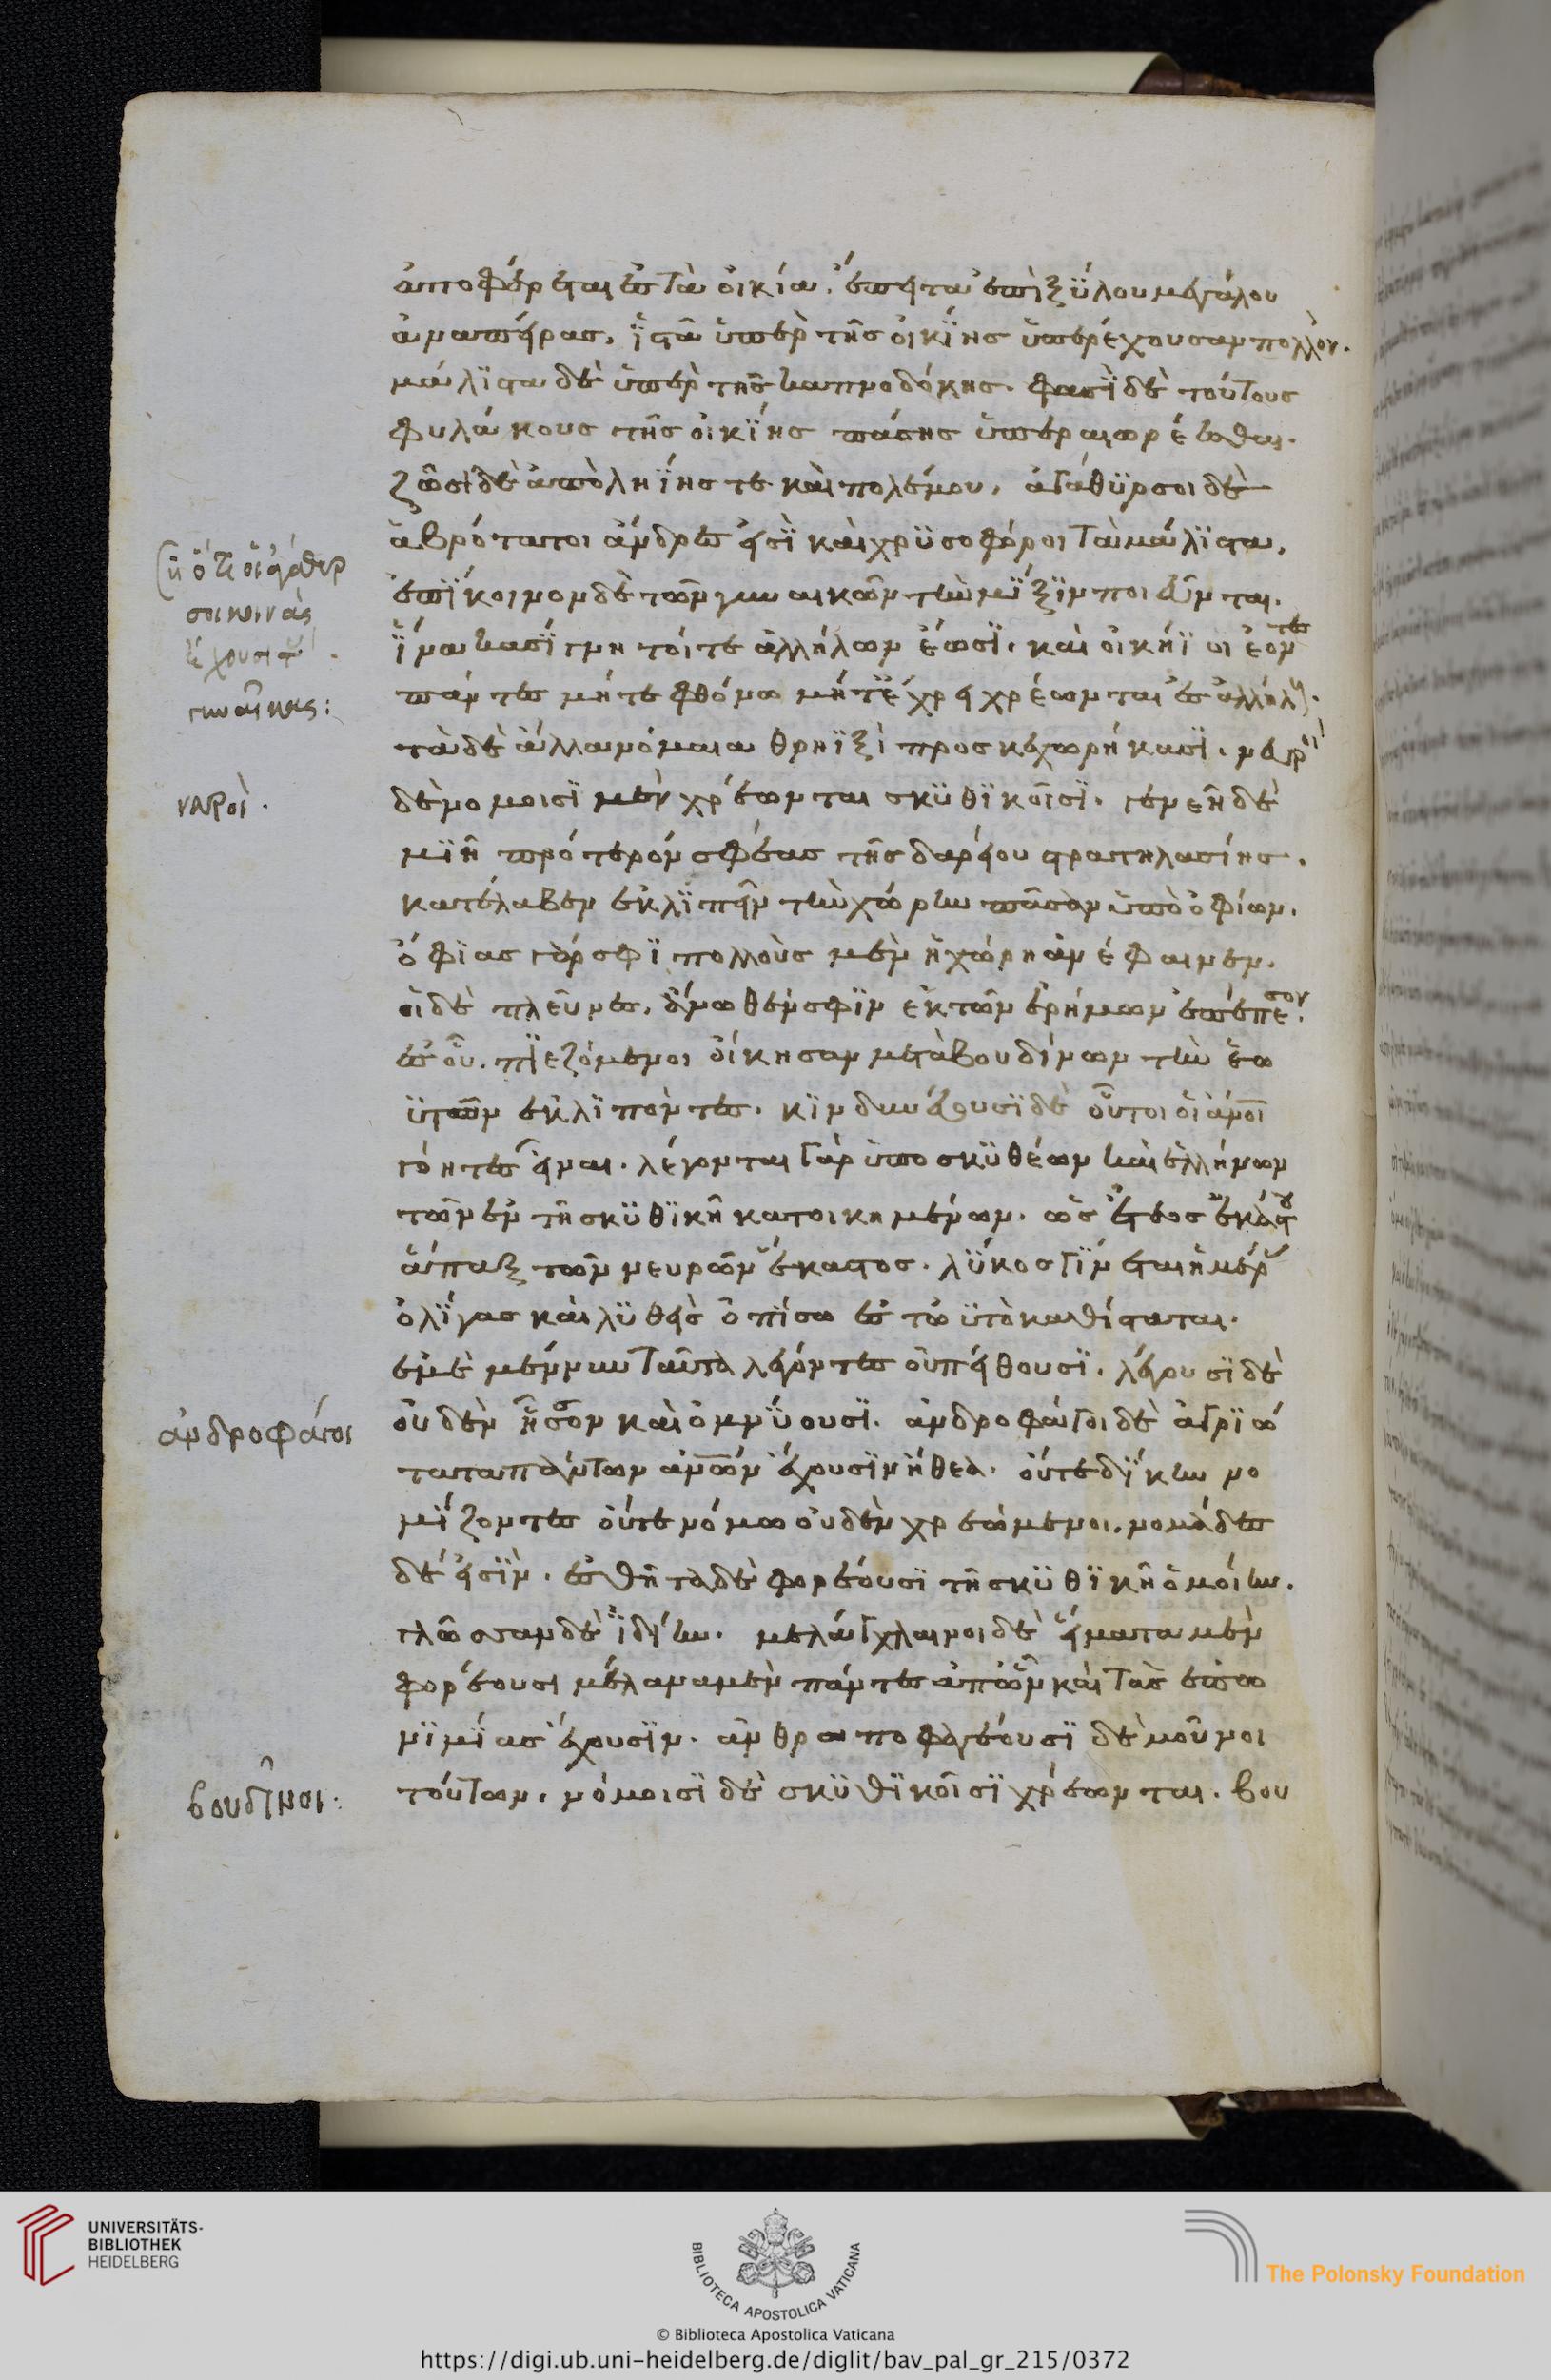 ἀποφέρεται ἐς τὰ οἰκία. ἔπειτα ἐπὶ ξύλου μεγάλου
ἀναπείρας, ἱστᾶ ὑπὲρ τῆς οἰκίης ὑπερέχουσαν πολλόν.
μάλιστα δὲ ὑπὲρ τῆς καπνοδόκης. φασὶ δὲ τούτους
φυλάκους τῆς οἰκίης πάσης ὑπεραιωρέεσθαι.
ζῶσι δὲ ἀπὸ ληίης τε καὶ πολέμου. ἀγάθυρσοι δὲ
ἁβρότατοι ἄνδρες εἰσὶ καὶ χρυσοφόροι τὰ μάλιστα.
ἐπίκοινον δὲ τῶν γυναικῶν τὴν μῖξιν ποιεῦνται.
ἵνα κασίγνητοί τε ἀλλήλων ἔωσι. καὶ οἰκήϊοι ἐόντες
πάντες μήτε φθόνω μήτ' ἔχθει χρέωνται ἐς ἀλλήλους.
τὰ δὲ ἄλλα νόμαια θρήϊξι προσκεχωρήκασι. νευροὶ
δὲ νόμοισι μὲν χρέωνται σκυθικοῖσι. γενεῆ δὲ
μιῆ πρότερόν σφεας τῆς δαρείου στρατηλασίης.
κατέλαβεν ἐκλιπεῖν τὴν χώρην πᾶσαν ὑπὸ ὀφίων.
ὄφιας γάρ σφι πολλοὺς μὲν ἡ χώρη ἀνέφαινεν.
οἱ δὲ πλεῦνες, ἄνωθέν σφιν ἐκ τῶν ἐρήμων ἐπέπεσον.
ἐς οὗ. πιεζόμενοι οἴκησαν μετὰ βουδίνων τὴν ἑω
υτῶν ἐκλιπόντες. κινδυνεύουσι δὲ οὗτοι οἱ ἄνοι
γόητες εἶναι. λέγονται γὰρ ὑπὸ σκυθέων καὶ ἑλλήνων
τῶν ἐν τῆ σκυθικῆ κατοικημένων. ὡς ἔτεος ἑκάστου
ἅπαξ τῶν νευρῶν ἕκαστος. λύκος γίνεται ἡμέρας
ὀλίγας καὶ αὖθις ὀπίσω ἐς τωυτὸ κατίσταται.
ἐμὲ μέν νυν ταῦτα λέγοντες οὐ πείθουσι. λέγουσι δὲ
οὐδὲν ἧσσον καὶ ὀμνύουσι. ἀνδροφάγοι δὲ ἀγριώ
τατα πάντων ἀνῶν ἔχουσιν ἤθεα. οὔτε δίκην νο
μίζοντες οὔτε νόμω οὐδὲν χρεώμενοι. νομάδες
δέ εἰσιν. ἐσθῆτα δὲ φορέουσι τῆ σκυθικῆ ὁμοίην.
γλῶσσαν δὲ ἰδίην. μελάγχλαινοι δὲ εἵματα μὲν
φορέουσι μέλανα μὲν πάντες ἀπ' ὧν καὶ τὰς ἐπω
νυμίας ἔχουσιν. ἀνθρωποφαγέουσι δὲ μοῦνοι
τούτων. νόμοισι δὲ σκυθικοῖσι χρέωνται. βου
ὅτι οἱ ἀγάθυρ
σοι κοινὰς
ἔχουσι τὰς
γυναῖκας:
νευροὶ.
ἀνδροφάγοι
βουδῖνοι:
UNIVERSITÄTS-
BIBLIOTHEK
HEIDELBERG
BIBLIOTECA APOSTOLICA VATICANA
The Polonsky Foundation
© Biblioteca Apostolica Vaticana
https://digi.ub.uni-heidelberg.de/diglit/bav_pal_gr_215/0372